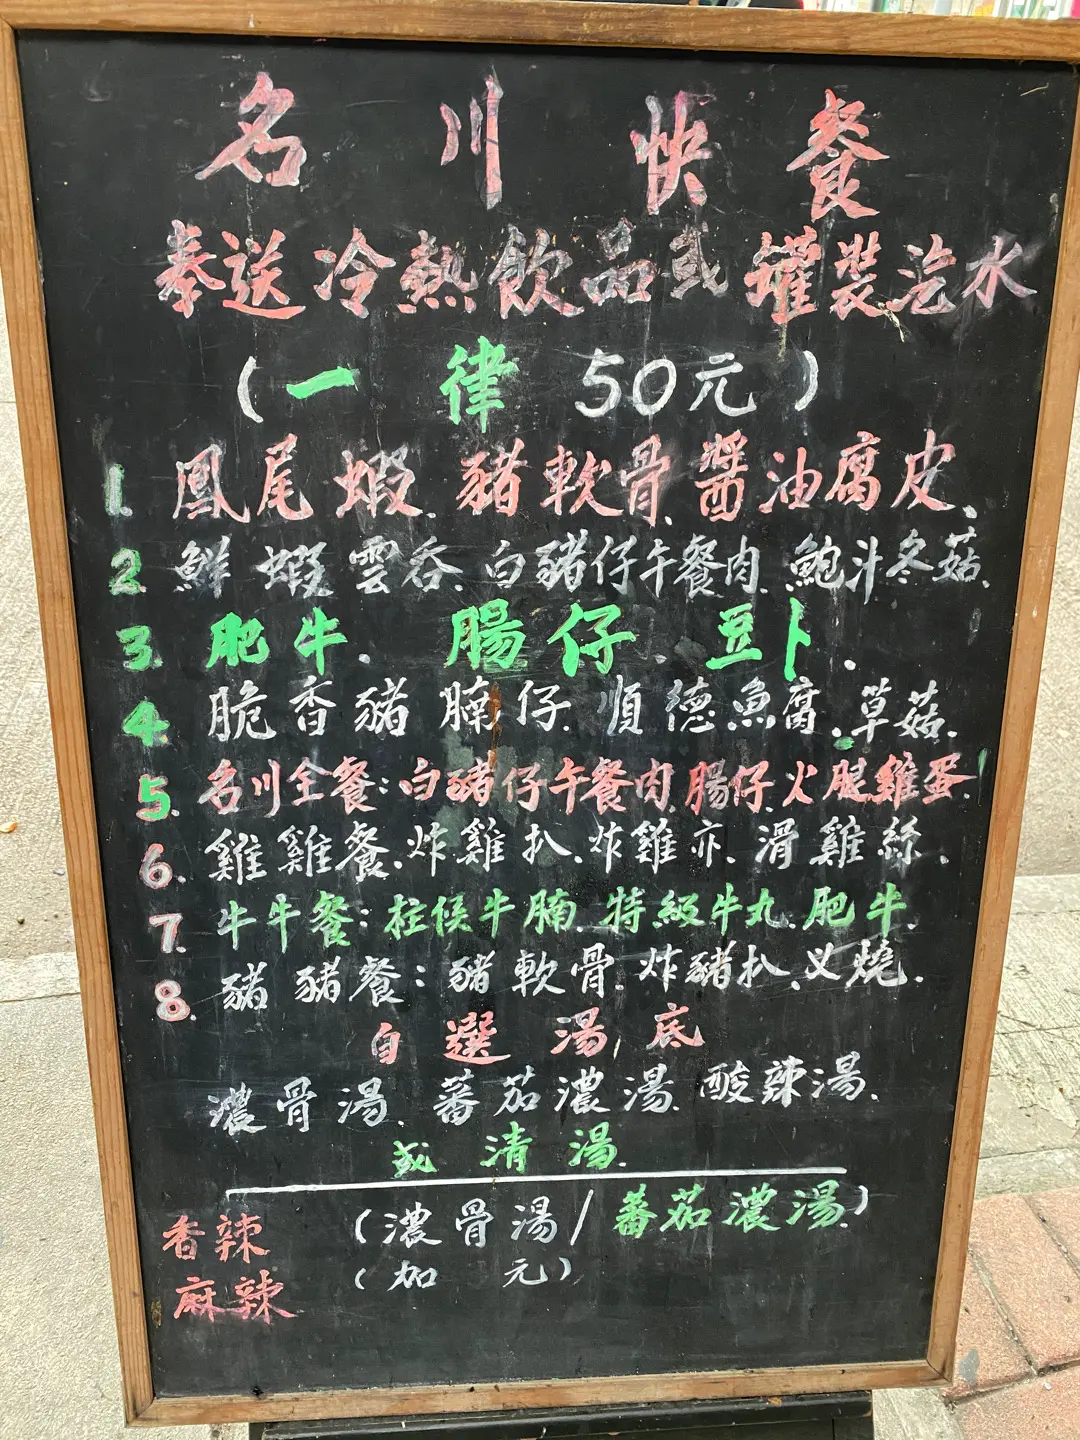 名川快餐
奉送冷熱飲品或罐裝汽水
(一律50元)
1. 鳳尾蝦.豬軟骨.醬油腐皮.
2. 鮮蝦雲吞.白豬仔午餐肉.鮑汁冬菇.
3. 肥牛.腸仔.豆卜.
4. 脆香豬腩仔.順德魚腐.草菇.
5. 名川全餐:白豬仔午餐肉.腸仔.火腿雞蛋
6. 雞雞餐.炸雞扒.炸雞亦.滑雞絲.
7. 牛牛餐:柱候牛腩.特級牛丸.肥牛.
8. 豬豬餐:豬軟骨.炸豬扒.义燒.
自選湯底
濃骨湯.蕃茄濃湯.酸辣湯.
或清湯.
香辣 (濃骨湯/蕃茄濃湯)
麻辣 (加 元)